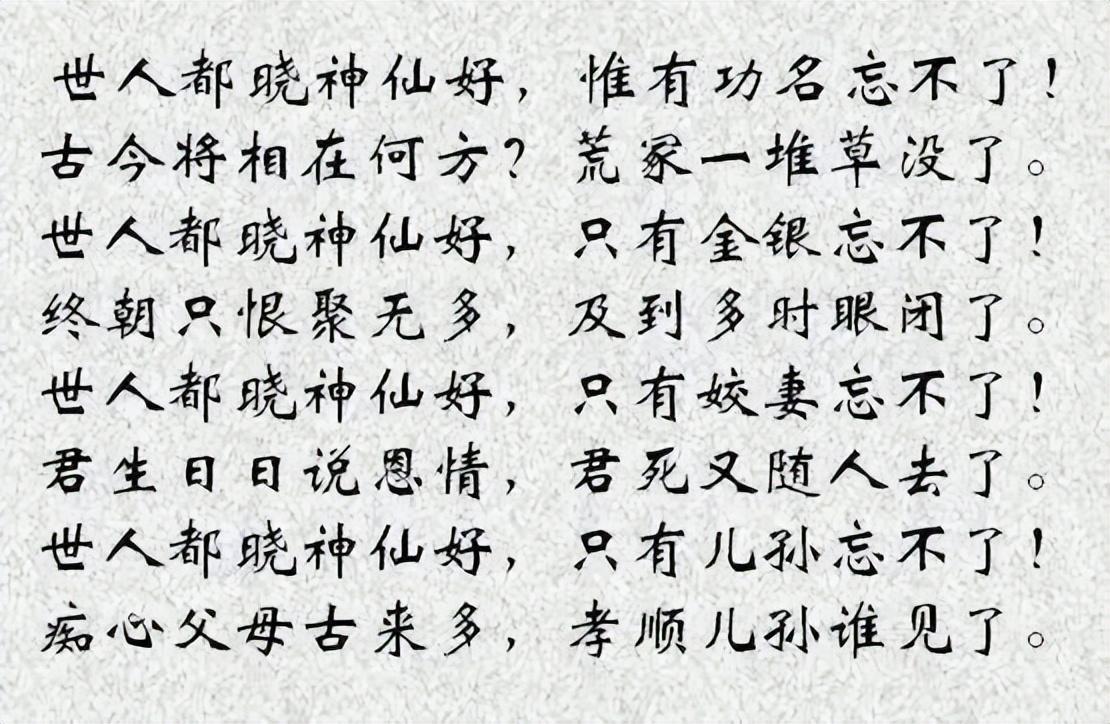 世人都晓神仙好，惟有功名忘不了！
古今将相在何方？荒冢一堆草没了。
世人都晓神仙好，只有金银忘不了！
终朝只恨聚无多，及到多时眼闭了。
世人都晓神仙好，只有姣妻忘不了！
君生日日说恩情，君死又随人去了。
世人都晓神仙好，只有儿孙忘不了！
痴心父母古来多，孝顺儿孙谁见了。